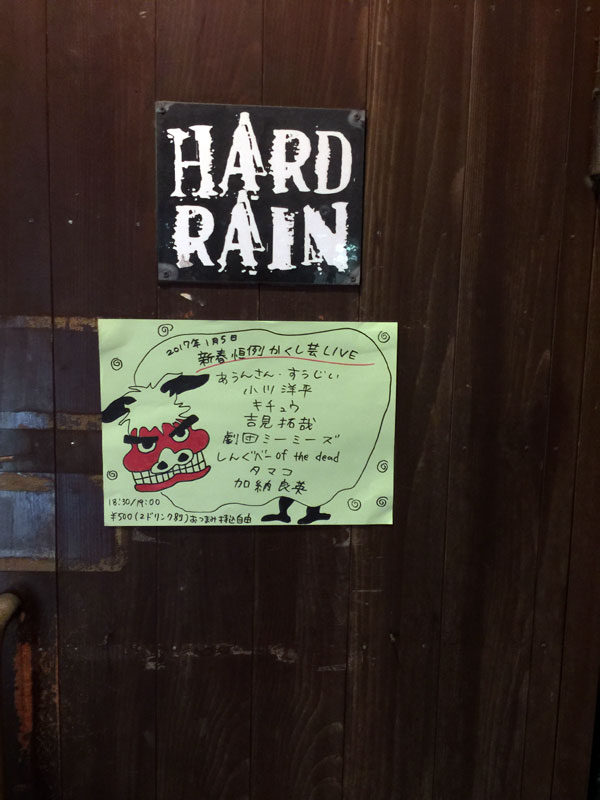 HARD
RAIN
2017年1月5日
新春恒例かくし芸LIVE
あうんさん・すうじい
小川洋平
キチュウ
吉見拓哉
劇団ミーミーズ
しんぐぺーof the dead
タマコ
加納良英
18:30/19:00
¥500(2ドリンク別)おつまみ持込自由